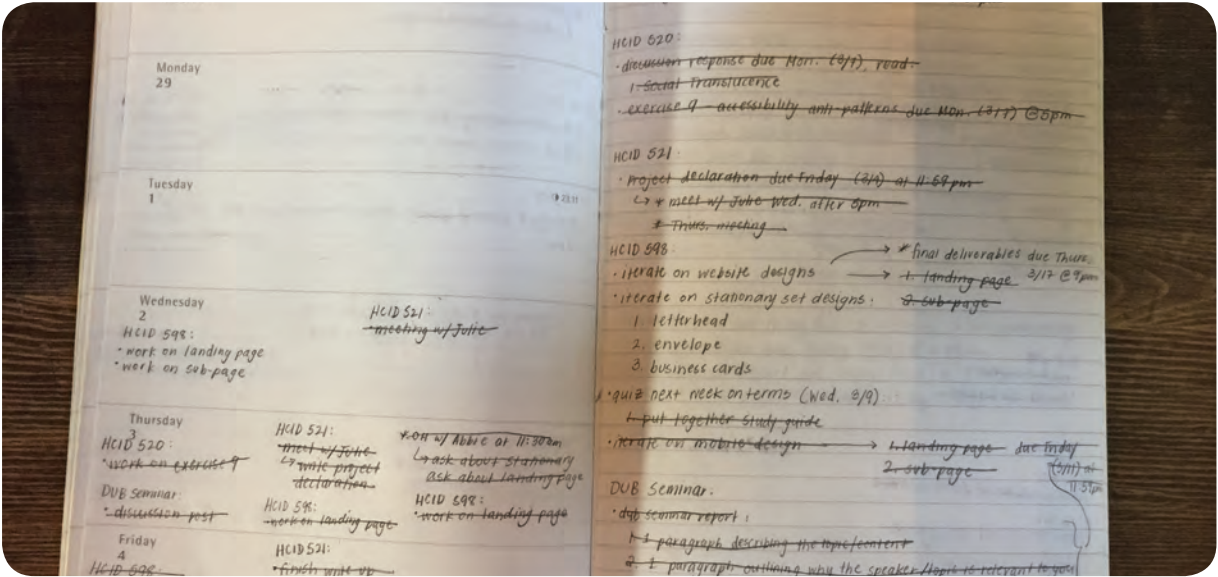 Monday
29
Tuesday
1
Wednesday
2
HCID 598:
• work on landing page
• work on sub-page
HCID 521:
• meeting w/ Julie
Thursday
3
HCID 520:
• work on exercise 9
DUB Seminar:
• discussion post
HCID 521:
• meet w/ Julie
↳ write project
declaration
HCID 598:
• work on landing page
OH w/ Abbie at 11:30am
↳ ask about stationary
ask about landing page
HCID 598:
• work on landing page
Friday
4
HCID 598:
HCID 521:
• finish write up
HCID 520:
• discussion response due Mon. (3/7), read:
1. Social Translucence
• exercise 9 - accessibility anti-patterns due Mon. (3/7) @5pm
HCID 521:
• Project declaration due Friday (3/4) at 11:59pm
↳ * meet w/ Julie Wed. after 5pm
* Thurs. meeting
HCID 598:
• iterate on website designs
→ * final deliverables due Thurs.
3/17 @9pm
→ 1. landing page
2. sub-page
• iterate on stationary set designs:
1. letterhead
2. envelope
3. business cards
• quiz next week on terms (Wed. 3/9):
1. put together study guide
• iterate on mobile design → 1. landing page due Friday
2. sub-page (3/11) at
11:59pm
DUB Seminar:
• dub seminar report:
1. 1 paragraph describing the topic/content
2. 1 paragraph outlining why the speaker/topic is relevant to you